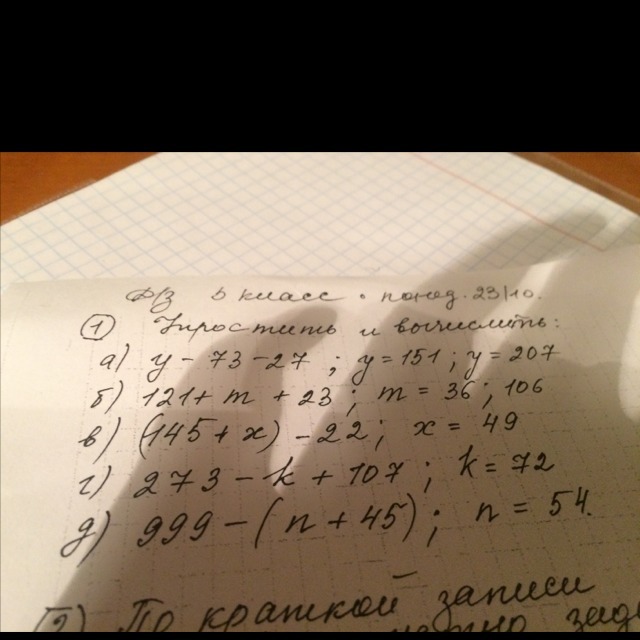 Д/З 5 класс понед. 23/10.
① Упростить и вычислить:
а) y - 73 - 27 ; y = 151 ; y = 207
б) 121 + m + 23 ; m = 36 ; 106
в) (145 + x) - 22 ; x = 49
г) 273 - k + 107 ; k = 72
д) 999 - (n + 45) ; n = 54.
2) По краткой записи